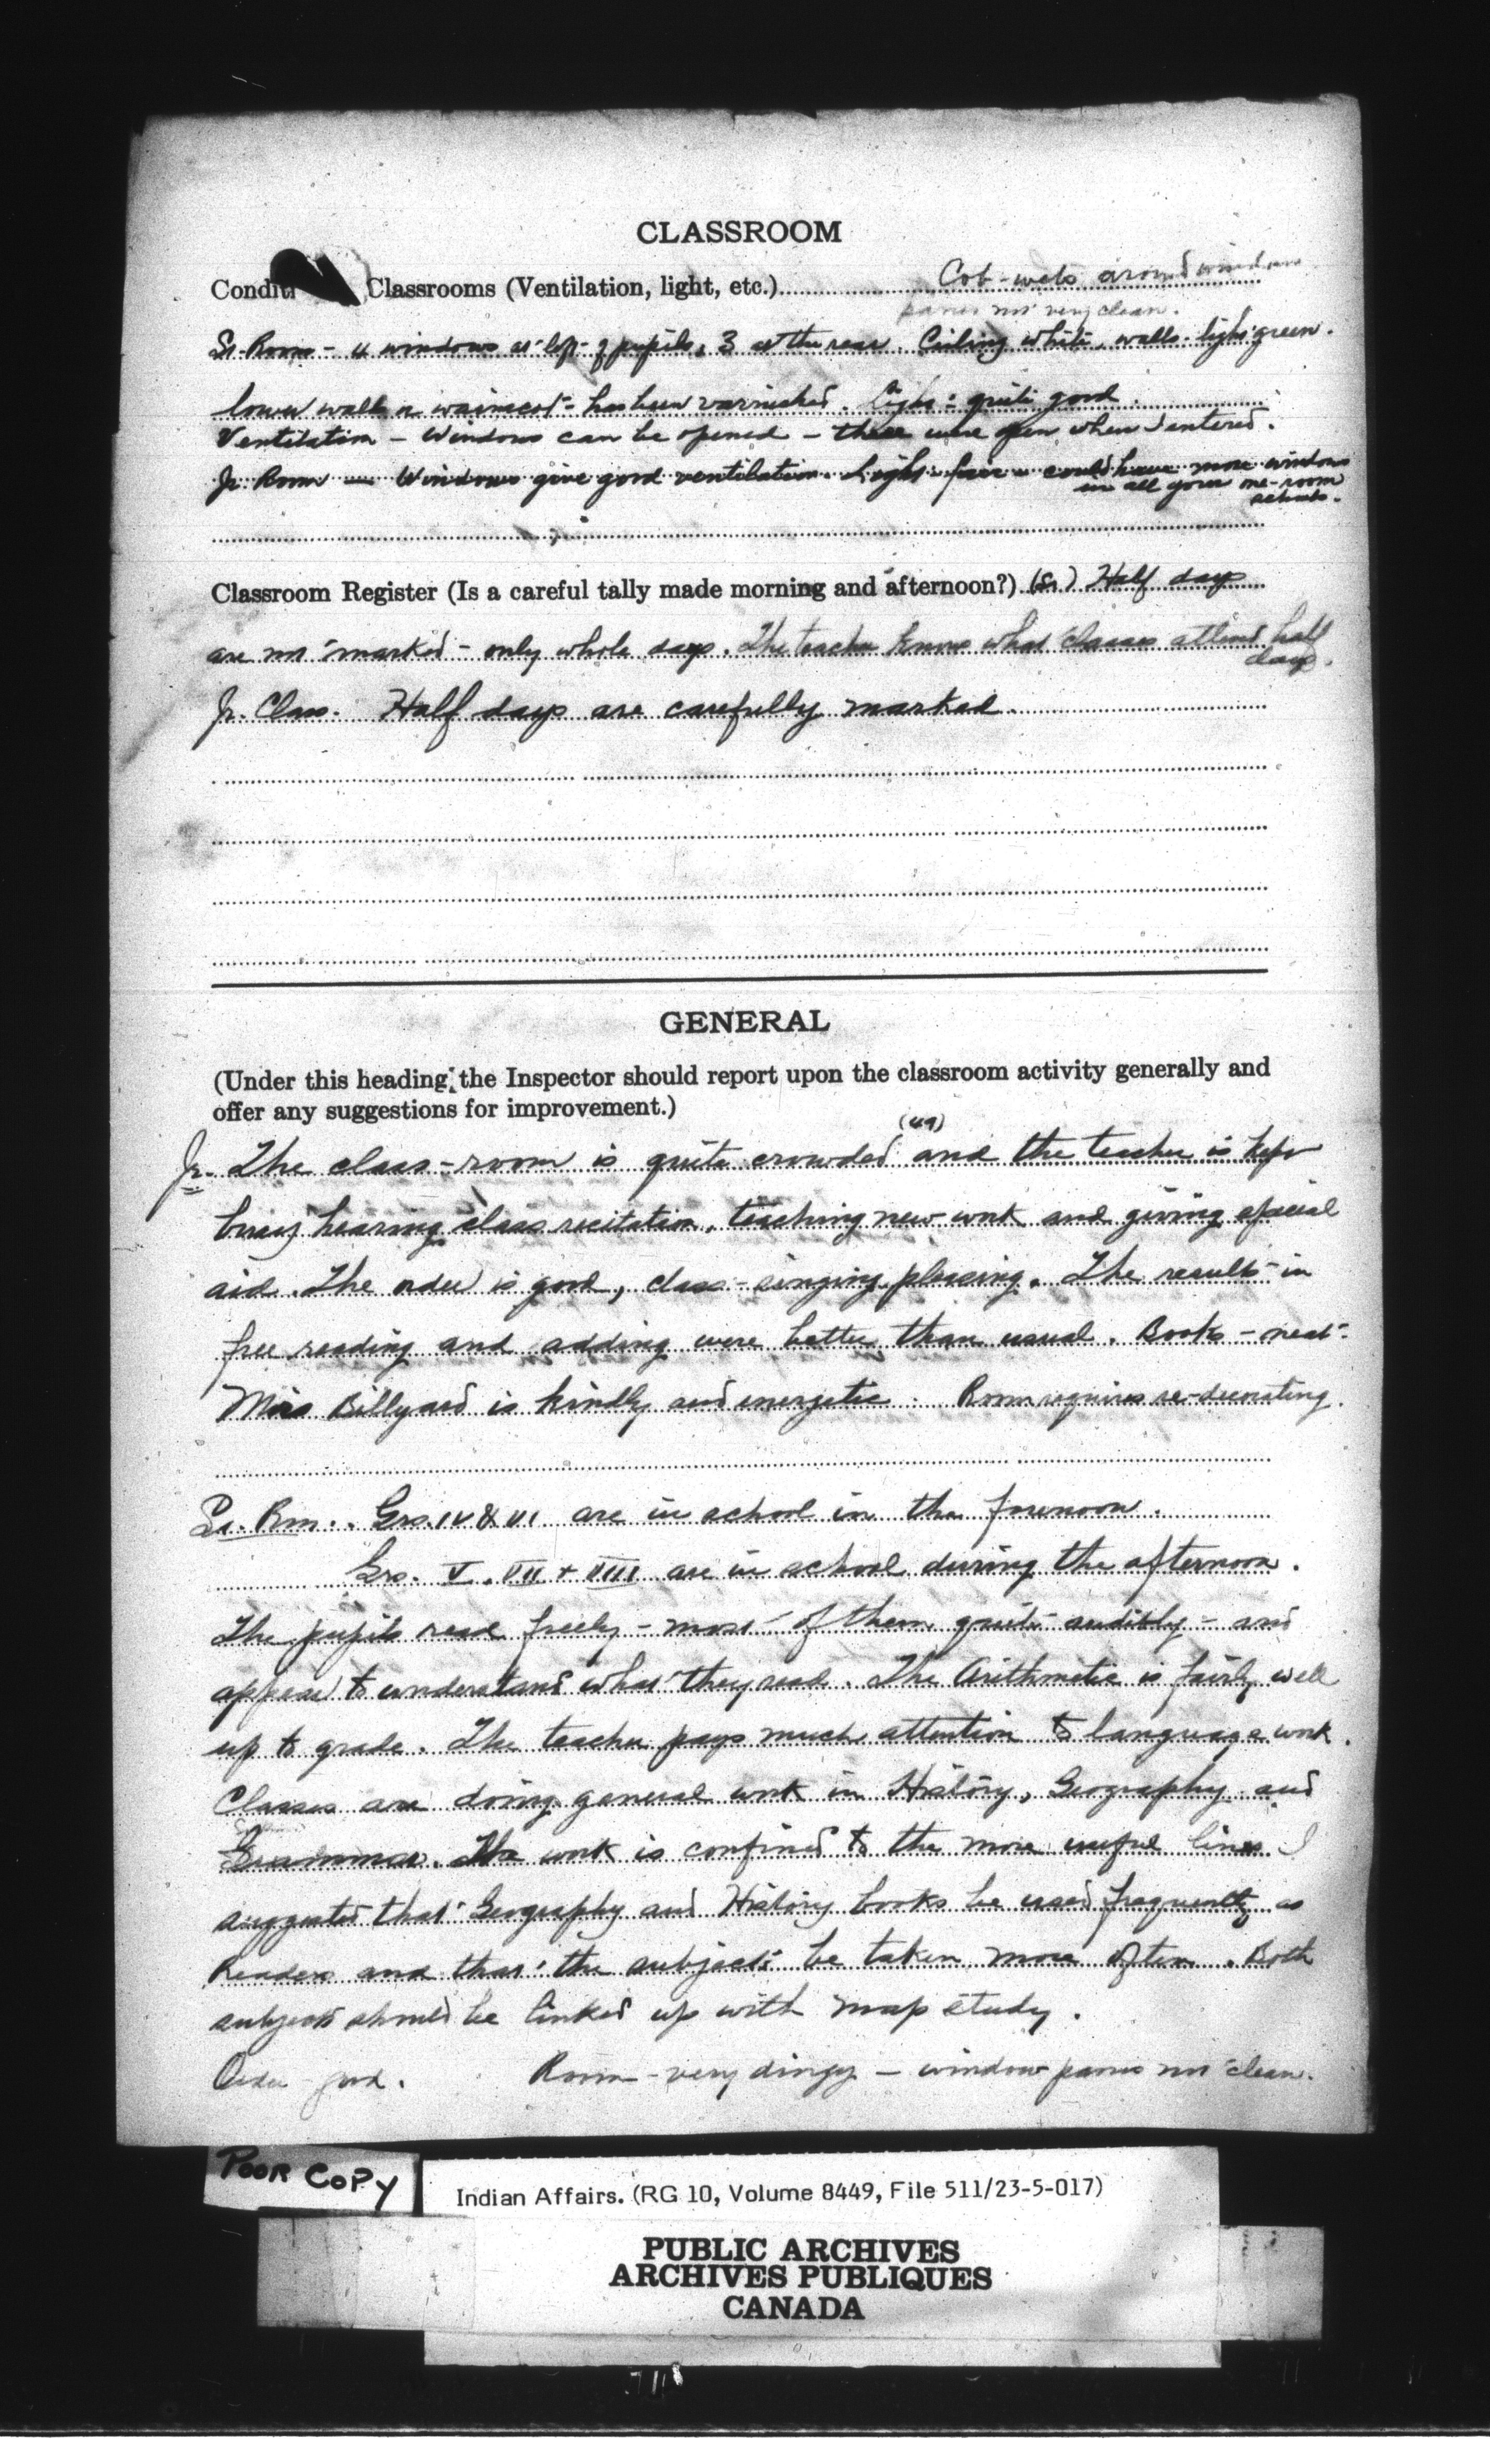 CLASSROOM
Conditi Classrooms (Ventilation, light, etc.) Cob-webs around window
panes not very clean.
Sr. Room - 4 windows at left of pupils, 3 at the rear. Ceiling white, walls light green.
lower walls a wainscot - has been varnished. Light: quite good.
Ventilation - Windows can be opened - these were open when I entered.
Jr. Room - Windows give good ventilation. Light fair - could have more windows
in all your one-room
schools.
Classroom Register (Is a careful tally made morning and afternoon?) (Sr.) Half days
are not marked - only whole days. The teacher knows what classes attend half
days.
Jr. Class. Half days are carefully marked.
GENERAL
(Under this heading the Inspector should report upon the classroom activity generally and
offer any suggestions for improvement.)
(49)
Jr. The class-room is quite crowded and the teacher is kept
busy hearing class recitation, teaching new work and giving special
aid. The order is good, class-singing pleasing. The results in
free reading and adding were better than usual. Books - neat.
Miss Billyard is kindly and energetic. Room requires re-decorating.
Sr. Rm. Grs. IV & VI are in school in the forenoon.
Grs. V, VII + VIII are in school during the afternoon.
The pupils read freely - most of them quite audibly - and
appear to understand what they read. The Arithmetic is fairly well
up to grade. The teacher pays much attention to language work.
Classes are doing general work in History, Geography and
Grammar. The work is confined to the more useful lines. I
suggested that Geography and History books be used frequently as
Readers and that the subjects be taken more often. Both
subjects should be linked up with map study.
Order good. Room - very dingy - window panes not clean.
POOR COPY
Indian Affairs. (RG 10, Volume 8449, File 511/23-5-017)
PUBLIC ARCHIVES
ARCHIVES PUBLIQUES
CANADA